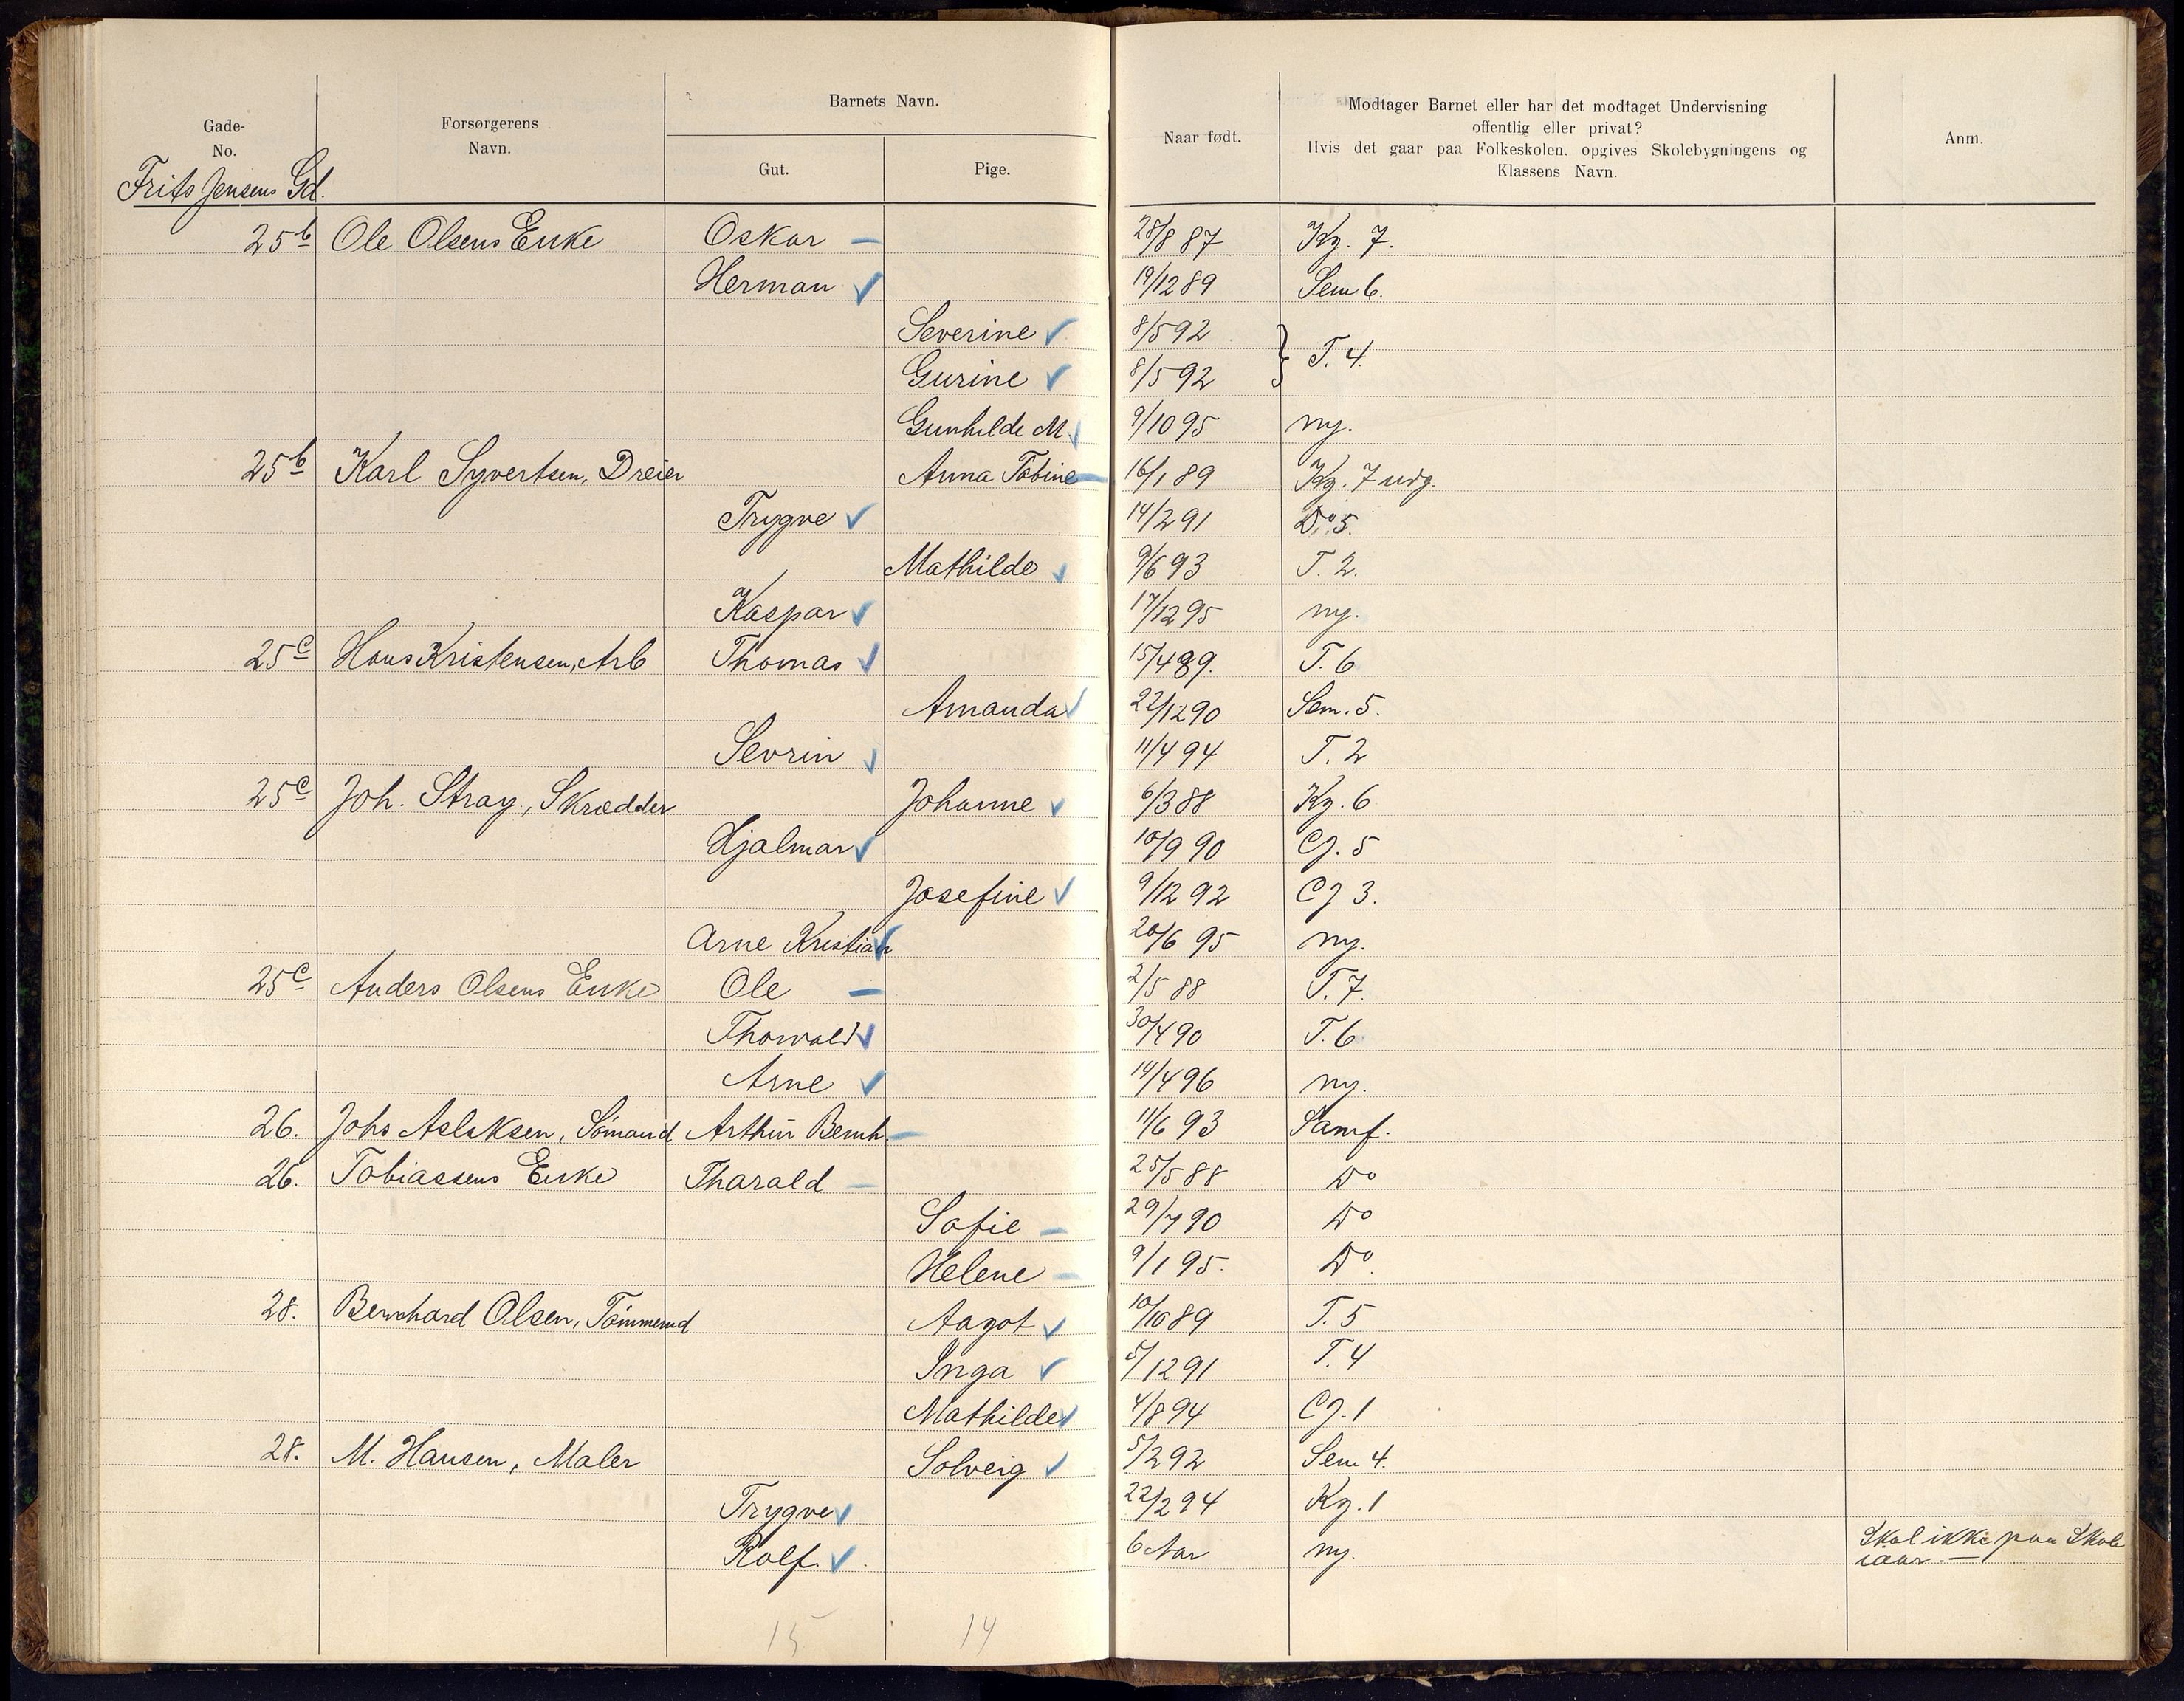 Gade-
No.
Forsørgerens
Navn.
Barnets Navn.
Gut.
Pige.
Naar født.
Modtager Barnet eller har det modtaget Undervisning
offentlig eller privat?
Hvis det gaar paa Folkeskolen, opgives Skolebygningens og
Klassens Navn.
Anm.
Frits Jensens Gd.
25b Ole Olsens Enke Oskar – 28/8 87 Kg. 7.
Herman ✓ 19/12 89 Sem 6.
Severine ✓ 8/5 92
} T. 4.
Gurine ✓ 8/5 92
Gunhilde M. ✓ 9/10 95 ny.
25b Karl Syvertsen, Dreier Anna Tobine – 16/1 89 Kg. 7 udg.
Trygve ✓ 14/2 91 Do 5.
Mathilde ✓ 9/6 93 T. 2.
Kaspar ✓ 17/12 95 ny.
25c Hans Kristensen, Arb Thomas ✓ 15/4 89. T. 6
Amanda ✓ 22/12 90 Sem. 5.
Sevrin ✓ 11/4 94 T. 2
25c Joh. Stray, Skrædder Johanne ✓ 6/3 88 Kg. 6
Hjalmar ✓ 10/9 90 CJ. 5
Josefine ✓ 9/12 92 CJ 3.
Arne Kristian ✓ 20/6 95 ny.
25c Anders Olsens Enke Ole – 2/5 88 T. 7.
Thorvald ✓ 30/4 90 T. 6
Arne ✓ 14/4 96 ny.
26. Johs Aslaksen, Sømand Arthur Bernh. – 11/6 93 Samf.
26. Tobiassens Enke Tharald – 25/5 88 Do
Sofie – 29/7 90 Do
Helene – 9/1 95. Do.
28. Bernhard Olsen, Tømmermd Aagot ✓ 10/10 89 T. 5
Inga ✓ 5/12 91 T. 4
Mathilde ✓ 4/8 94 CJ. 1
28. M. Hansen, Maler Solveig ✓ 5/2 92 Sem 4.
Trygve ✓ 22/2 94 Kg. 1
Rolf. ✓ 6 Aar ny. Skal ikke paa Skole
iaar. –
15 14